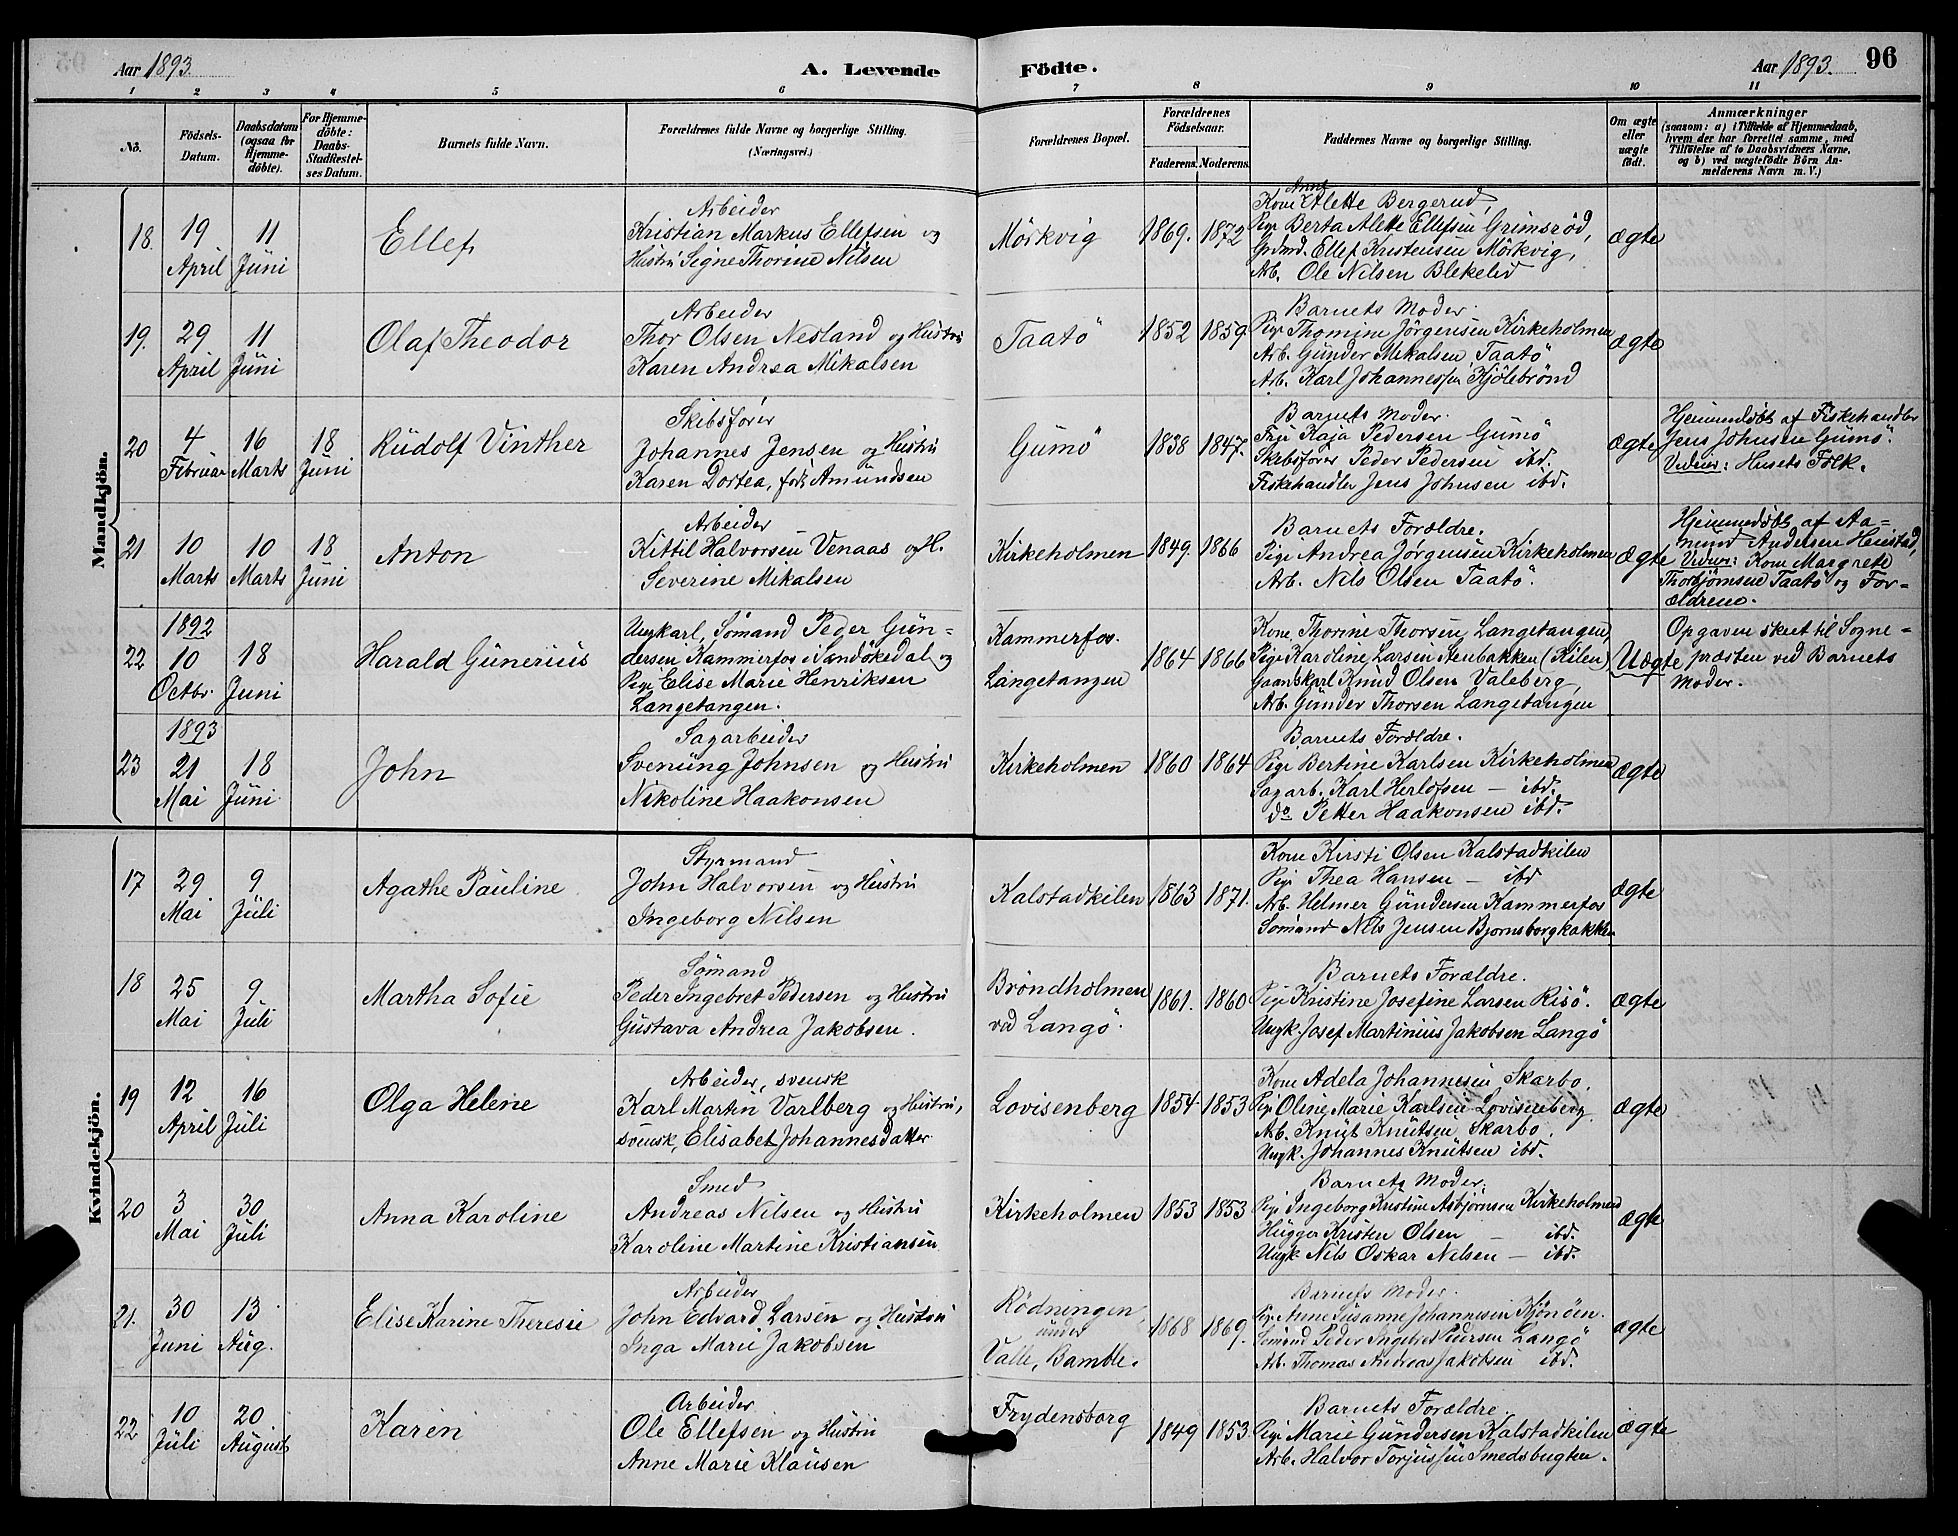 Aar 1893.
A. Levende
Födte.
Aar 1893.
96
1 2 3 4 5 6 7 8 9 10 11
No.
Födsels-Datum.
Daabsdatum (ogsaa for Hjemme-döbte).
For Hjemme-döbte: Daabs-Stadfæstel-ses Datum.
Barnets fulde Navn.
Forældrenes fulde Navne og borgerlige Stilling.
(Næringsvei.)
Forældrenes Bopæl.
Forældrenes Födselsaar.
Faderens. Moderens.
Faddernes Navne og borgerlige Stilling.
Om ægte eller uægte født.
Anmærkninger
(saasom: a) i Tilfælde af Hjemmedaab,
hvem der har forrettet samme, med
Tilföielse af to Daabsvidners Navne,
og b) ved uægtefödte Börn An-
melderens Navn m. V.)
Mandkjön.
18. 19 April 11 Juni
Ellef
Arbeider
Kristian Markus Ellefsen og
Hustru Signe Thorine Nilsen
Mörkvig
1869. 1872
Kone Anne Alette Bergerud,
Pige Berta Alette Ellefsen Grimsröd,
Grdmd. Ellef Kristensen Mörkvig,
Arb. Ole Nilsen Blekelid
ægte
19. 29 April 11 Juni
Olaf Theodor
Arbeider
Thor Olsen Nesland og Hustru
Karen Andrea Mikalsen
Taatö
1852 1859
Barnets Moder.
Pige Thomine Jörgensen Kirkeholmen
Arb. Gunder Mikalsen Taatö
Arb. Karl Johannessen Kjölebrönd
ægte
20 4 Februar 16 Marts 18 Juni
Rudolf Vinther
Skibsförer
Johannes Jensen og Hustru
Karen Dortea, föd Amundsen
Gumö
1838 1847.
Barnets Moder.
Frøi Kaja Pedersen Gumö
Skibsförer Peder Pedersen ibd.
Fiskehandler Jens Johnsen ibd.
ægte
Hjemmedöbt af Fiskehandler
Jens Johnsen Gumö.
Vidner: Husets Folk.
21 10 Marts 10 Marts 18 Juni
Anton
Arbeider
Kittil Halvorsen Venaas og H.
Severine Mikalsen
Kirkeholmen
1849. 1866
Barnets Forældre.
Pige Andrea Jörgensen Kirkeholmen
Arb. Nils Olsen Taatö.
ægte
Hjemmedöbt af Aa-
mund Andersen Heistad,
Vidner: Kone Margrete
Thorbjörnsen Taatö og For-
ældrene.
1892
22 10 Octbr. 18 Juni
Harald Gunerius
Ungkarl, Sömand Peder Gun-
dersen Kammerfos i Sandökedal og
Pige Elise Marie Henriksen
Langetangen.
Kammerfos.
Langetangen
1864 1866
Kone Thorine Thorsen Langetangen
Pige Karoline Larsen Stenbakken (Kilen)
Gaardskarl Knud Olsen Valeberg,
Arb. Gunder Thorsen Langetangen
Uægte
Opgaven skeet til Sogne-
præsten ved Barnets
Moder.
1893
23 21 Mai 18 Juni
John
Sagarbeider
Svenung Johnsen og Hustru
Nikoline Haakonsen
Kirkeholmen
1860 1864
Barnets Forældre.
Pige Bertine Karlsen Kirkeholmen
Sagarb. Karl Herlofsen — ibd.
do Petter Haakonsen ibd.
ægte
Kvindekjön.
17 29 Mai 9 Juli
Agathe Pauline
Styrmand
John Halvorsen og Hustru
Ingeborg Nilsen
Kalstadkilen
1863 1871.
Kone Kirsti Olsen Kalstadkilen
Pige Thea Hansen — ibd
Arb. Helmer Gundersen Kammerfos
Sömand Nils Jensen Bjornsborgbakken
ægte
18 25 Mai 9 Juli
Martha Sofie
Sömand
Peder Ingebret Pedersen og Hustru
Gustava Andrea Jakobsen.
Bröndholmen
ved Langö.
1861. 1860
Barnets Forældre.
Pige Kristine Josefine Larsen Risö.
Ungk. Josef Martinius Jakobsen Langö
ægte
19 12 April 16 Juli
Olga Helene
Arbeider, svensk
Karl Martin Varlberg og Hustru,
svensk, Elisabet Johannesdatter
Lovisenberg
1854 1853
Kone Adela Johannesen Skarbo.
Pige Oline Marie Karlsen Lovisenberg
Arb. Knut Knutsen Skarbo.
Ungk. Johannes Knutsen ibd.
ægte
20 3 Mai 30 Juli
Anna Karoline
Smed
Andreas Nilsen og Hustru
Karoline Martine Kristiansen
Kirkeholmen
1853 1853
Barnets Moder.
Pige Ingeborg Kristine Asbjörnsen Kirkeholmen
Hugger Kristen Olsen — ibd.
Ungk. Nils Oskar Nilsen — ibd.
ægte
21. 30 Juni 13 Aug.
Elise Karine Theresie
Arbeider
John Edvard Larsen og Hustru
Inga Marie Jakobsen
Rödningen
under
Valle, Bamble.
1868 1869.
Barnets Moder.
Pige Anne Susanne Johannesen Kjönöen.
Sömand Peder Ingebret Pedersen Langö
Arb. Thomas Andreas Jakobsen ibd.
ægte
22 10 Juli 20 August
Karen
Arbeider
Ole Ellefsen og Hustru
Anne Marie Klausen
Frydensborg
1849 1853.
Barnets Forældre.
Pige Marie Gundersen Kalstadkilen
Arb. Halvor Torjussen Smedsbugten.
ægte